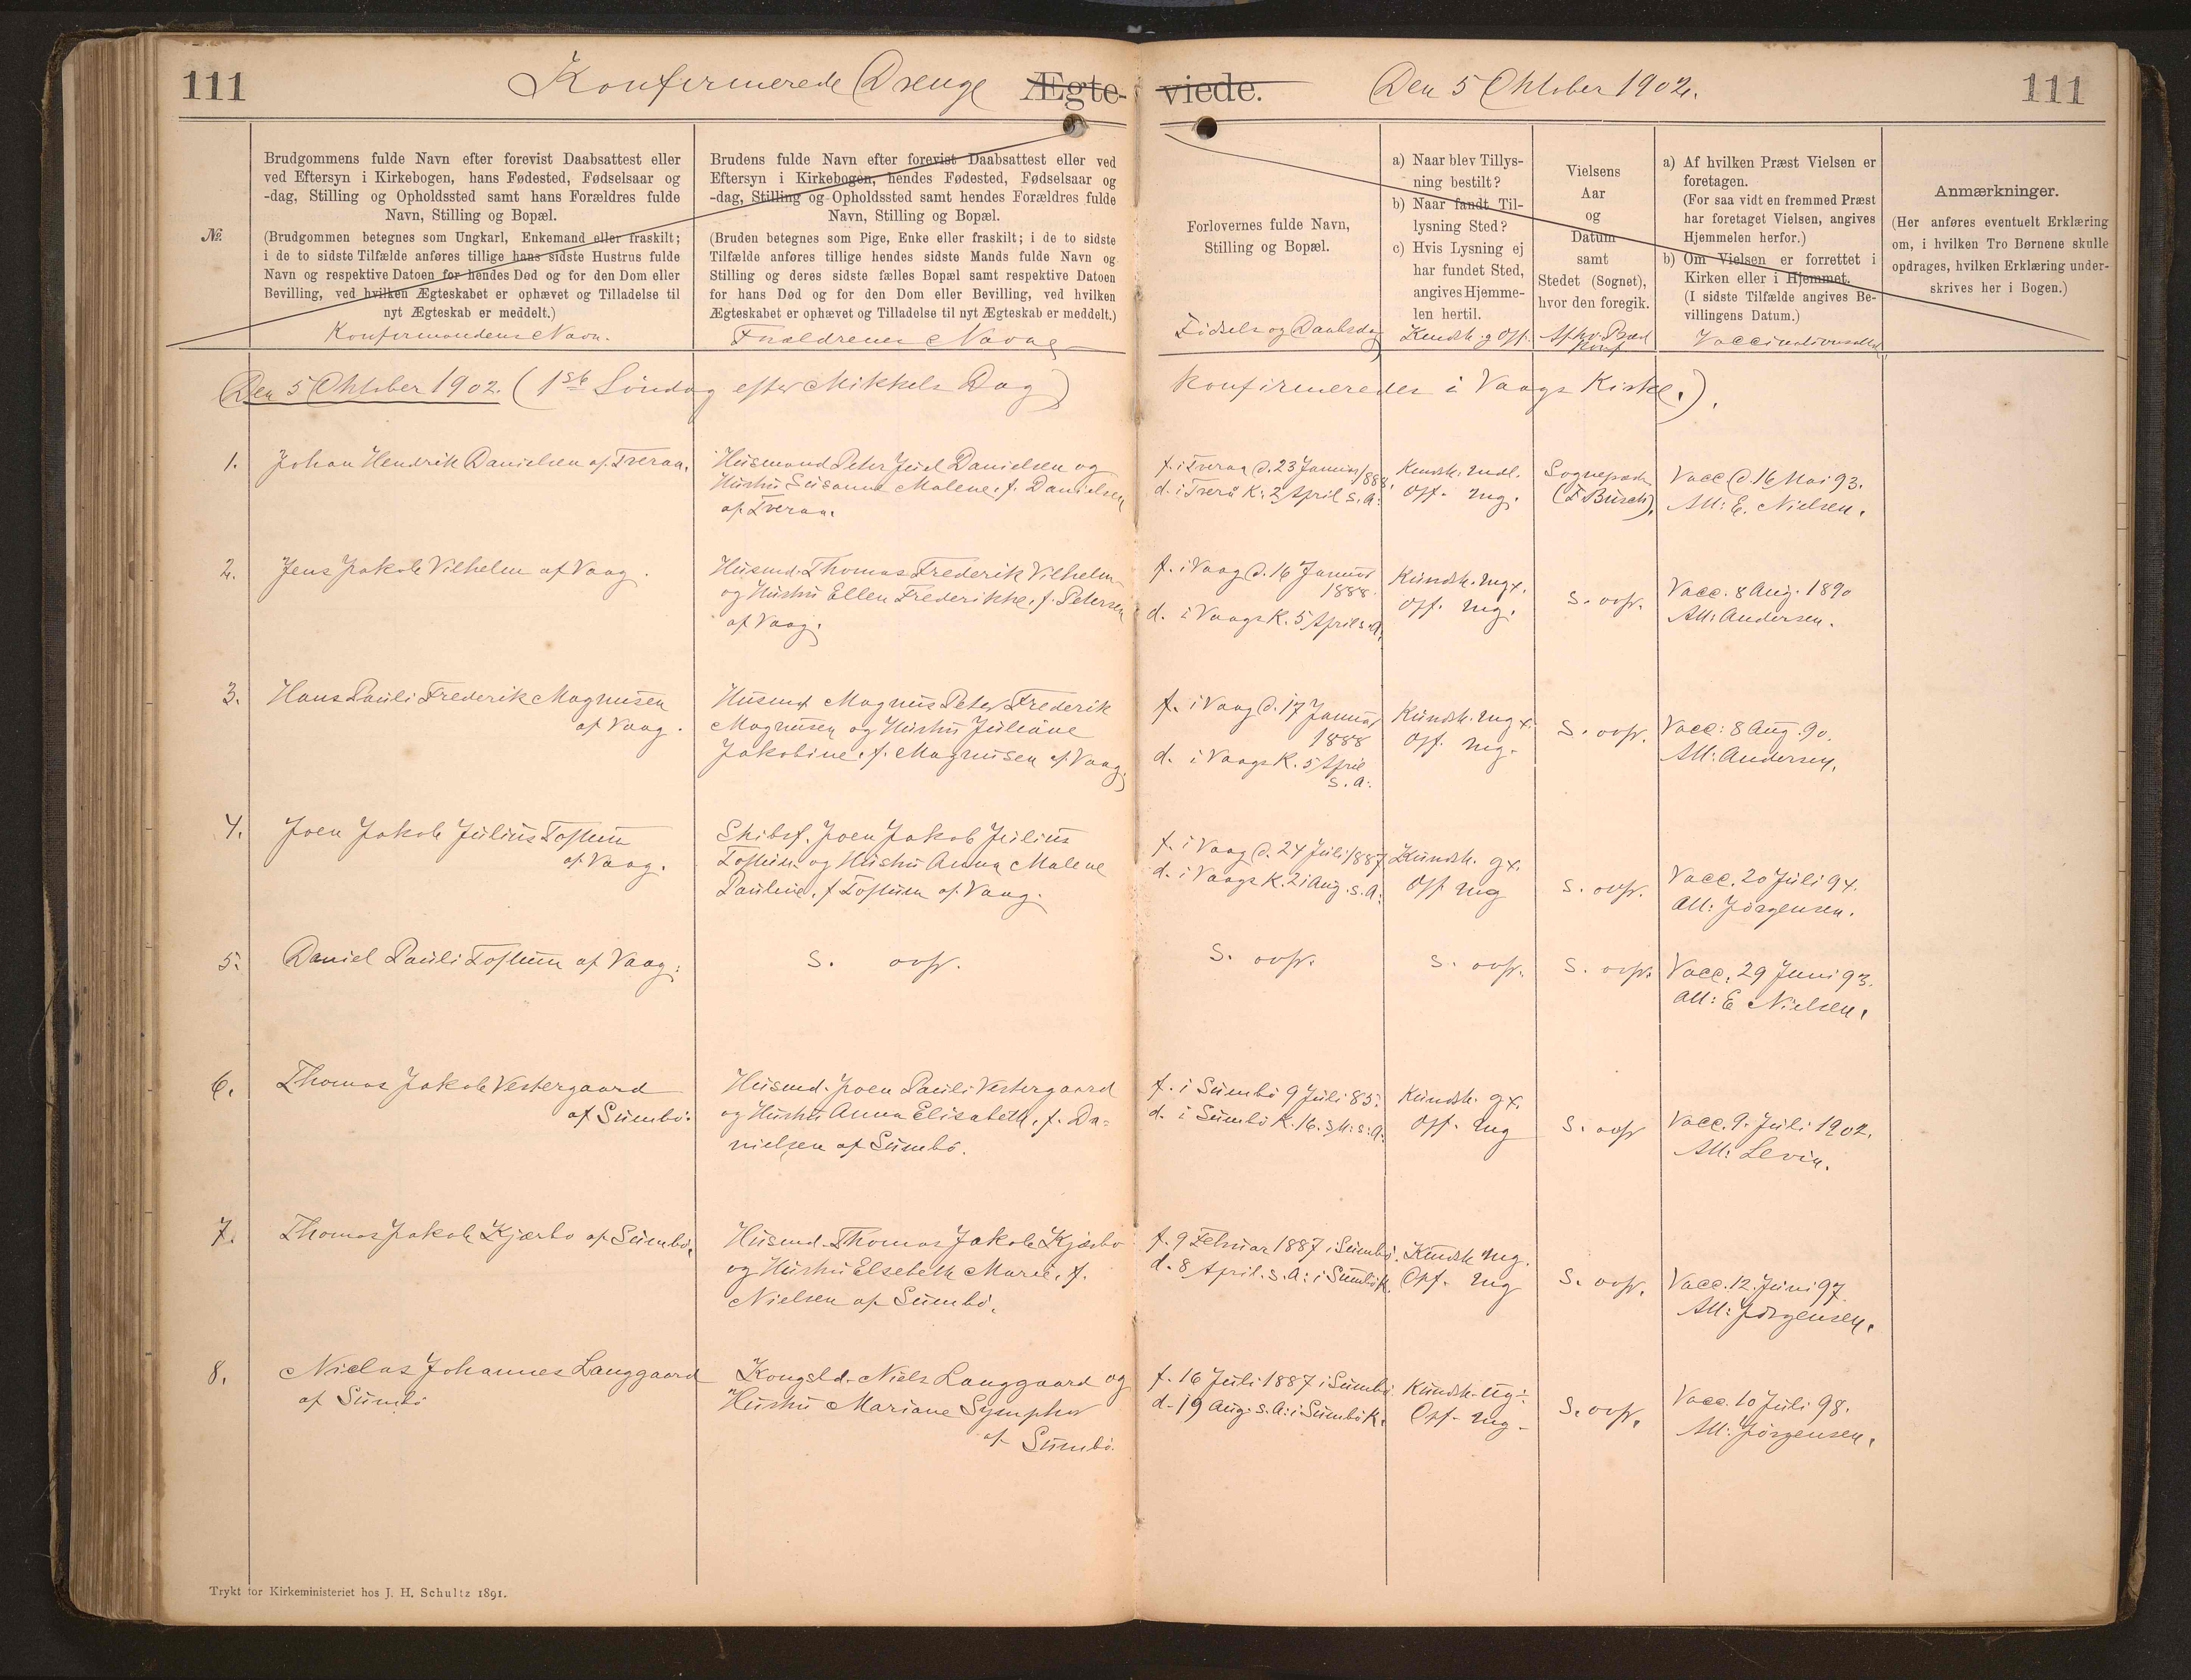 111
Konfirmerede Drenge Ægte-
viede. Den 5 Oktober 1902.
111
№.
Brudgommens fulde Navn efter forevist Daabsattest eller
ved Eftersyn i Kirkebogen, hans Fødested, Fødselsaar og
-dag, Stilling og Opholdssted samt hans Forældres fulde
Navn, Stilling og Bopæl.
(Brudgommen betegnes som Ungkarl, Enkemand eller fraskilt;
i de to sidste Tilfælde anføres tillige hans sidste Hustrus fulde
Navn og respektive Datoen for hendes Død og for den Dom eller
Bevilling, ved hvilken Ægteskabet er ophævet og Tilladelse til
nyt Ægteskab er meddelt.)
Konfirmandens Navn.
Brudens fulde Navn efter forevist Daabsattest eller ved
Eftersyn i Kirkebogen, hendes Fødested, Fødselsaar og
-dag, Stilling og Opholdssted samt hendes Forældres fulde
Navn, Stilling og Bopæl.
(Bruden betegnes som Pige, Enke eller fraskilt; i de to sidste
Tilfælde anføres tillige hendes sidste Mands fulde Navn og
Stilling og deres sidste fælles Bopæl samt respektive Datoen
for hans Død og for den Dom eller Bevilling, ved hvilken
Ægteskabet er ophævet og Tilladelse til nyt Ægteskab er meddelt.)
Forældrenes Navne
Forlovernes fulde Navn,
Stilling og Bopæl.
Fødsels og Daabsdag
a) Naar blev Tillys-
ning bestilt?
b) Naar fandt Til-
lysning Sted?
c) Hvis Lysning ej
har fundet Sted,
angives Hjemme-
len hertil.
Kundsk. og Opf.
Vielsens
Aar
og
Datum
samt
Stedet (Sognet),
hvor den foregik.
Af hv. Præst
konf
a) Af hvilken Præst Vielsen er
foretagen.
(For saa vidt en fremmed Præst
har foretaget Vielsen, angives
Hjemmelen herfor.)
b) Om Vielsen er forrettet i
Kirken eller i Hjemmet.
(I sidste Tilfælde angives Be-
villingens Datum.)
Anmærkninger.
(Her anføres eventuelt Erklæring
om, i hvilken Tro Børnene skulle
opdrages, hvilken Erklæring under-
skrives her i Bogen.)
Den 5 Oktober 1902. (1ste Söndag efter Mikkels Dag) Konfirmeredes i Vaags Kirke.).
1. Johan Hendrik Danielsen af Tveraa.
Husmand Peter Juel Danielsen og
Hustru Susanne Malene, f. Danielsen
af Tveraa.
f. i Tveraa d. 23 Januar 1888.
d. i Tverå K. 2 April s. A.
Kundsk. mdl.
Opf. mg.
Sognepræst
(F Busch).
Vacc. d. 16 Mai 93.
Att: E. Nielsen.
2. Jens Jakob Vilhelm af Vaag.
Husmd. Thomas Frederik Vilhelm
og Hustru Ellen Frederikke, f. Petersen
af Vaag.
f. i Vaag d. 16 Januar
1888.
d. i Vaags K. 5 April s. A.
Kundsk. mgx.
Opf. mg.
S. ovfr.
Vacc. 8 Aug. 1890
Att: Andersen.
3. Hans Pauli Frederik Magnusen
af Vaag.
Husmd Magnus Peter Frederik
Magnusen og Hustru Juliane
Jakobine, f. Magnusen af Vaag.
f. i Vaag d. 17 Januar
1888
d. i Vaags K. 5 April
s. A.
Kundsk. mgx.
Opf. mg.
S. ovfr.
Vacc: 8 Aug. 90.
Att: Andersen.
4. Joen Jakob Julius Toftum
af Vaag.
Skibsf. Joen Jakob Julius
Toftum og Hustru Anna Malene
Pauline, f. Toftum af Vaag.
f. i Vaag d. 24 Juli 1887
d. i Vaags K. 21 Aug. s. A.
Kundsk. gx.
Opf. mg
S. ovfr.
Vacc. 20 Juli 94.
Att: Jörgensen.
5. Daniel Pauli Toftum af Vaag.
S. ovfr.
S. ovfr.
S. ovfr.
S. ovfr.
Vacc. 29 Juni 93.
Att: E Nielsen.
6. Thomas Jakob Vestergaard
af Sumbö.
Husmd. Joen Pauli Vestergaard
og Hustru Anna Elisabeth, f. Da-
nielsen af Sumbö.
f. i Sumbö 9 Juli 85.
d. i Sumbö K. 16. s. M. s. A.
Kundsk. gx.
Opf. mg
S. ovfr
Vacc. 9. Juli 1902.
Att: Levin.
7. Thomas Jakob Kjærbo af Sumbö.
Husmd. Thomas Jakob Kjærbo
og Hustru Elsebeth Marie, f.
Nielsen af Sumbö.
f. 9 Februar 1887 i Sumbö.
d. 8 April. s. A: i Sumbö K.
Kundsk mg.
Opf. mg
S. ovfr.
Vacc. 12. Juni 97.
Att: Jörgensen.
8. Niclas Johannes Langgaard
af Sumbö
Kongsld. Niels Langgaard og
Hustru Mariane Symphor
af Sumbö.
f. 16 Juli 1887 i Sumbö
d. 19 Aug. s. A: i Sumbö K.
Kundsk. ug÷
Opf. mg.
S. ovfr.
Vacc. 10 Juli 98.
Att: Jörgensen.
Trykt for Kirkeministeriet hos J. H. Schultz 1891.